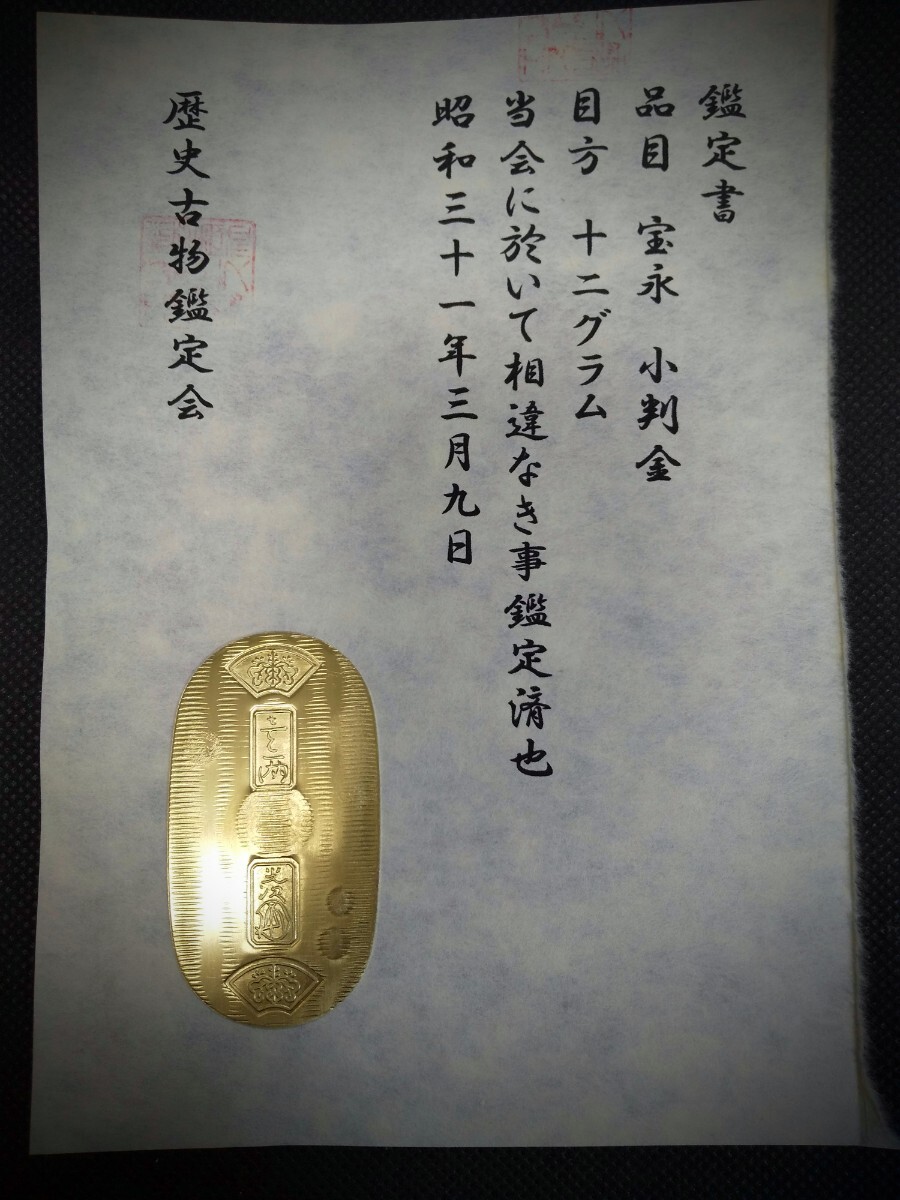 鑑定書
品目　宝永　小判金
目方　十二グラム
当会に於いて相違なき事鑑定済也
昭和三十一年三月九日
歴史古物鑑定会
壱両
光次